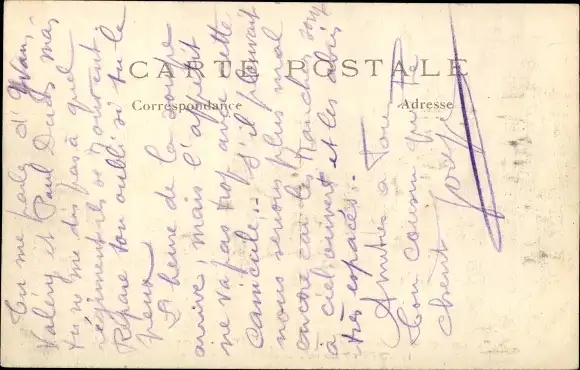 CARTE POSTALE
Correspondance
Adresse
Tu me parles d'Yvan,
Valéry et Paul Ducos mais
tu ne me dis pas à quel
régiment ils se trouvent.
Répare ton oubli si tu le
peux
L'heure de la soupe
arrive, mais l'appétit
ne va pas trop avec cette
canicule. S'il pleuvait
nous serions plus mal
encore car la tranchée est
à ciel ouvert et les abris
très espacés.
Amitiés à tous
Ton cousin qui te
chérit
Joseph